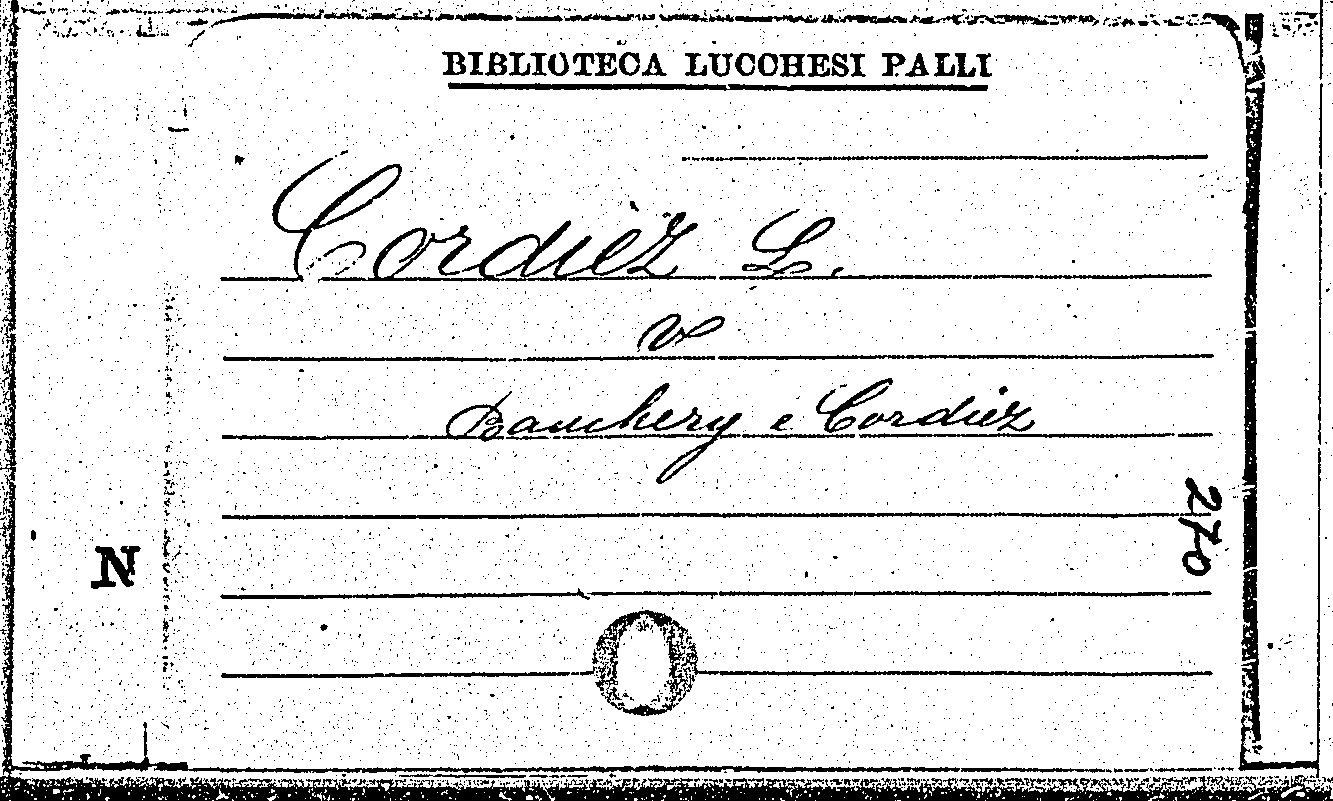 BIBLIOTECA LUCCHESI PALLI
Cordiéz L.
v
Bauchery e Cordiéz
270
N